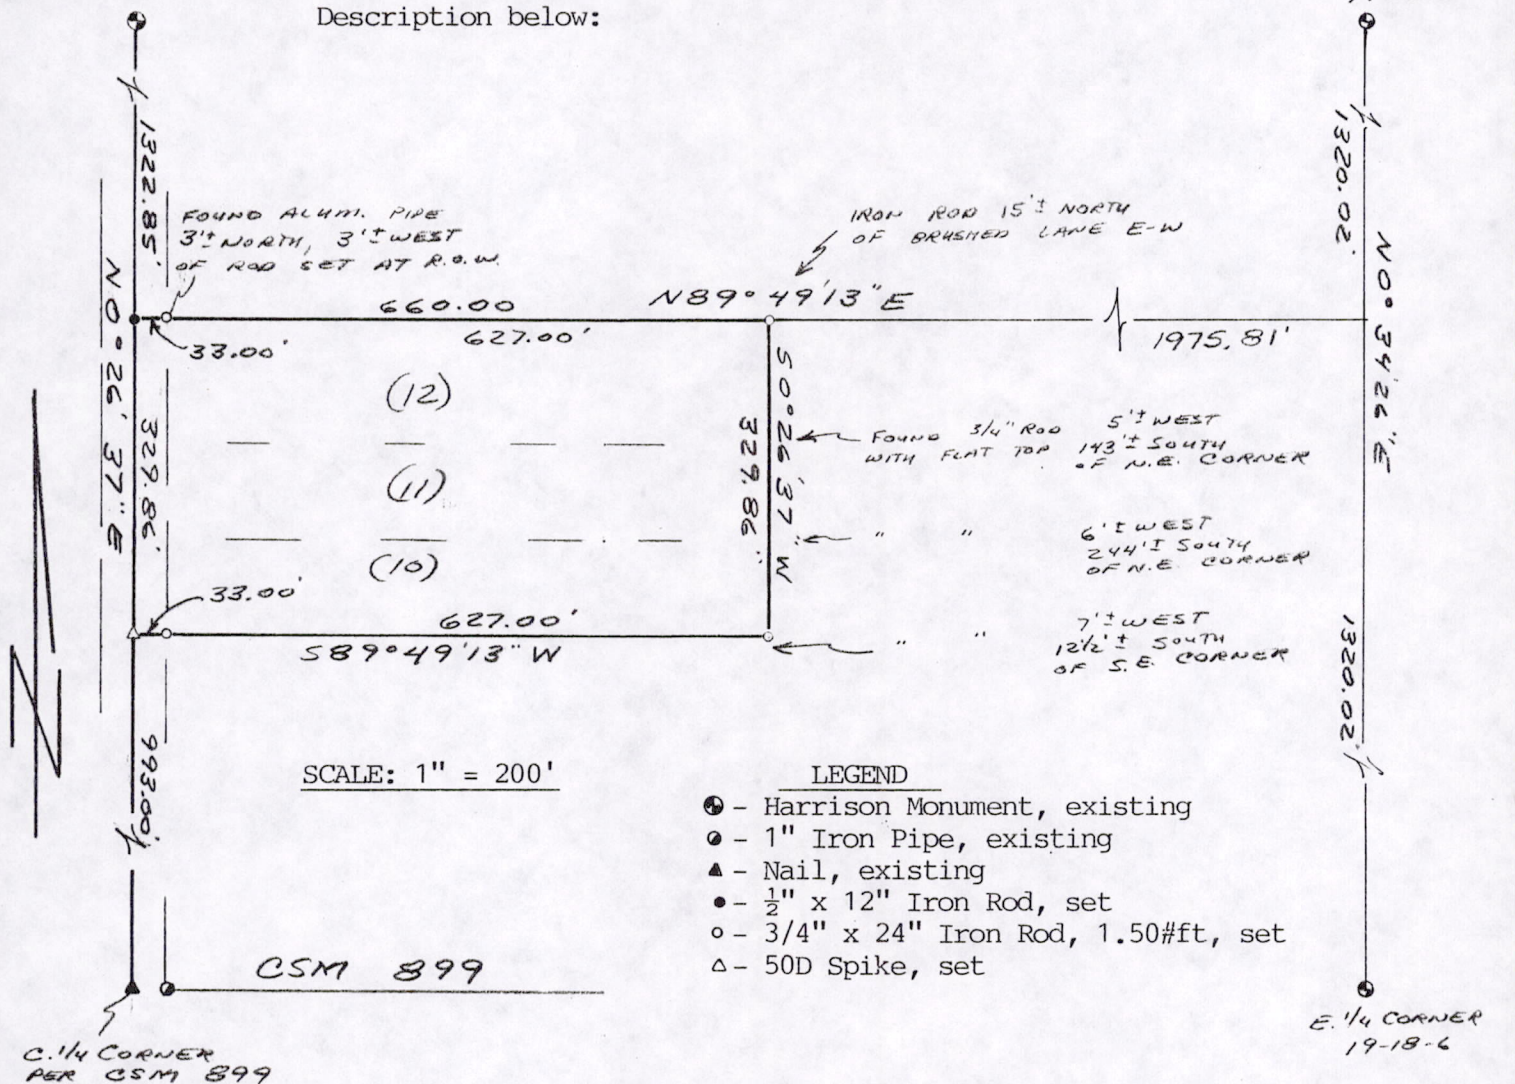 Description below:
1322.85'
1320.02'
FOUND ALUM. PIPE
3'± NORTH, 3'± WEST
OF ROD SET AT R.O.W.
IRON ROD 15'± NORTH
OF BRUSHED LANE E-W
N 0° 26' 37" E
N 0° 34' 26" E
660.00
N 89° 49' 13" E
627.00'
33.00'
1975.81'
(12)
S 0° 26' 37" W
329.86'
329.86'
FOUND 3/4" ROD 5'± WEST
WITH FLAT TOP 143'± SOUTH
OF N.E. CORNER
(11)
" " 6'± WEST
244'± SOUTH
OF N.E. CORNER
(10)
33.00'
627.00'
S 89° 49' 13" W
" " 7'± WEST
12½'± SOUTH
OF S.E. CORNER
1320.02'
N
993.00'
SCALE: 1" = 200'
LEGEND
- Harrison Monument, existing
- 1" Iron Pipe, existing
- Nail, existing
- ½" x 12" Iron Rod, set
- 3/4" x 24" Iron Rod, 1.50#ft, set
- 50D Spike, set
CSM 899
C. 1/4 CORNER
PER CSM 899
E. 1/4 CORNER
19-18-6